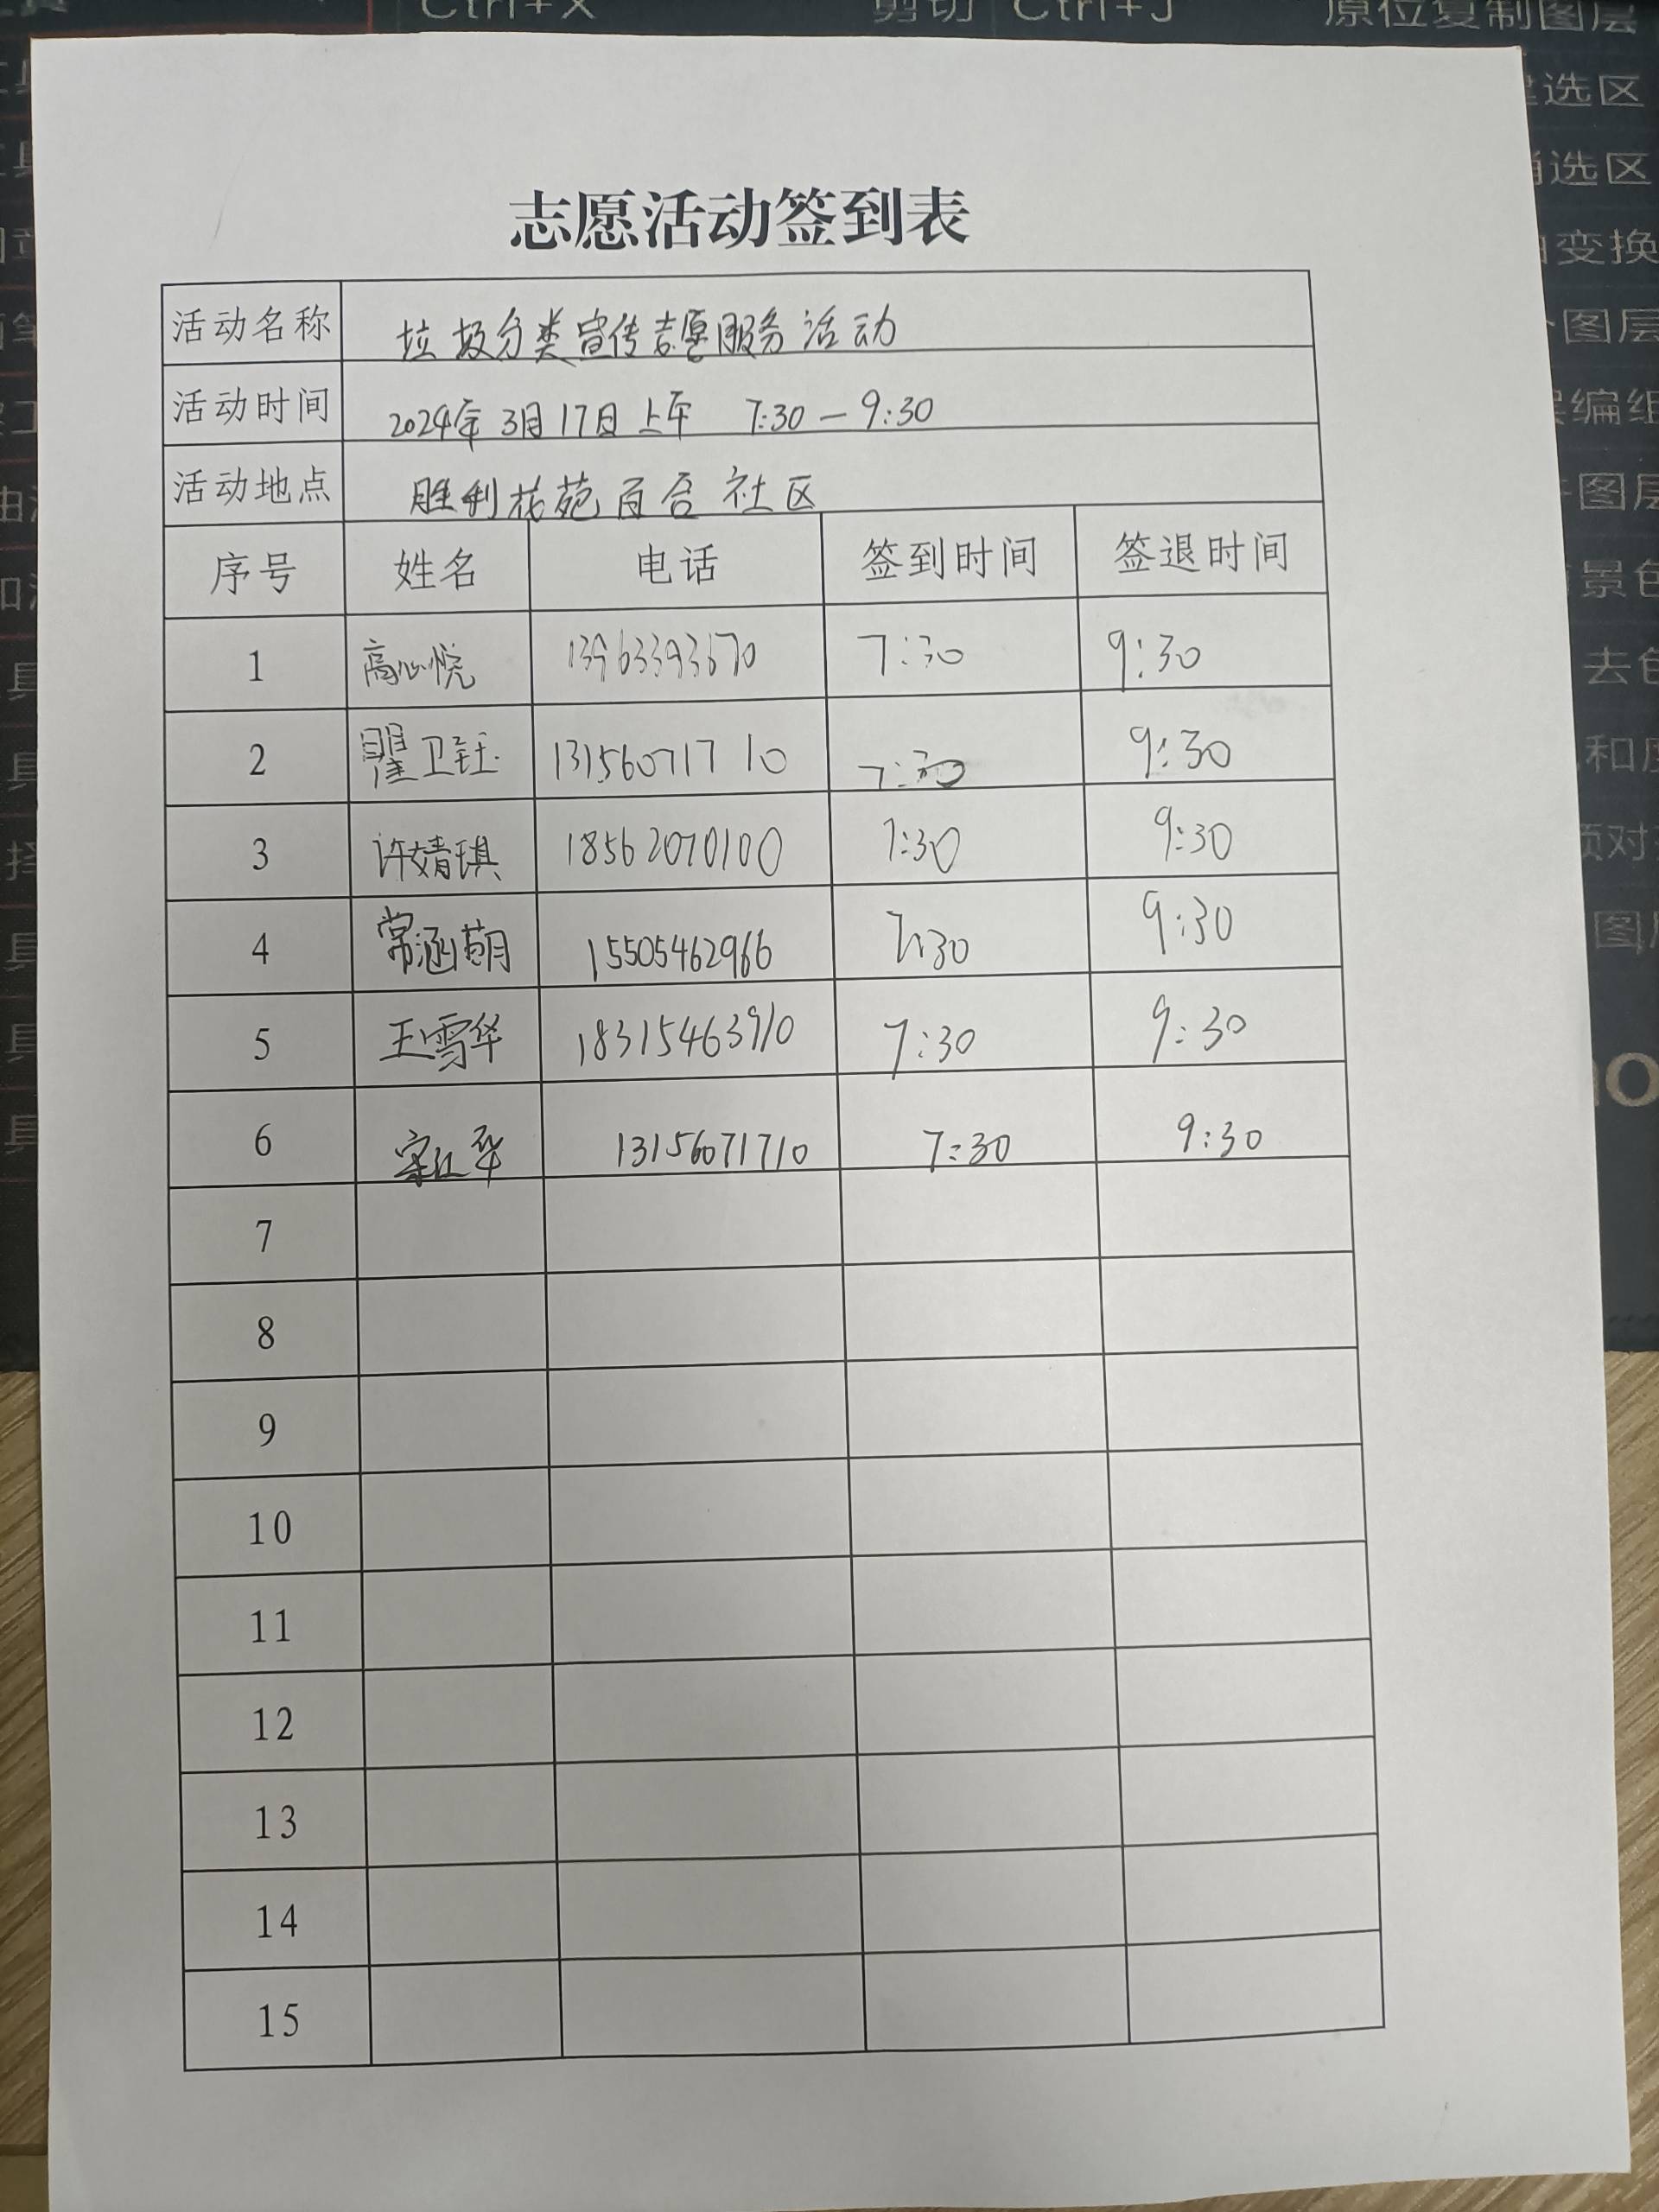 Ctrl+X 剪切 Ctrl+J 原位复制图层
选区
选区
变换
图层
编组
图层
景色
去色
和度
图层
志愿活动签到表
活动名称 垃圾分类宣传志愿服务活动
活动时间 2024年3月17日上午 7:30-9:30
活动地点 胜利花苑百合社区
序号 姓名 电话 签到时间 签退时间
1 高心悦 13963393670 7:30 9:30
2 翟卫钰 13156071710 7:30 9:30
3 许婧琪 18562070100 7:30 9:30
4 常涵萌 15505462966 7:30 9:30
5 王雪华 18315463910 7:30 9:30
6 13156071710 7:30 9:30
7
8
9
10
11
12
13
14
15